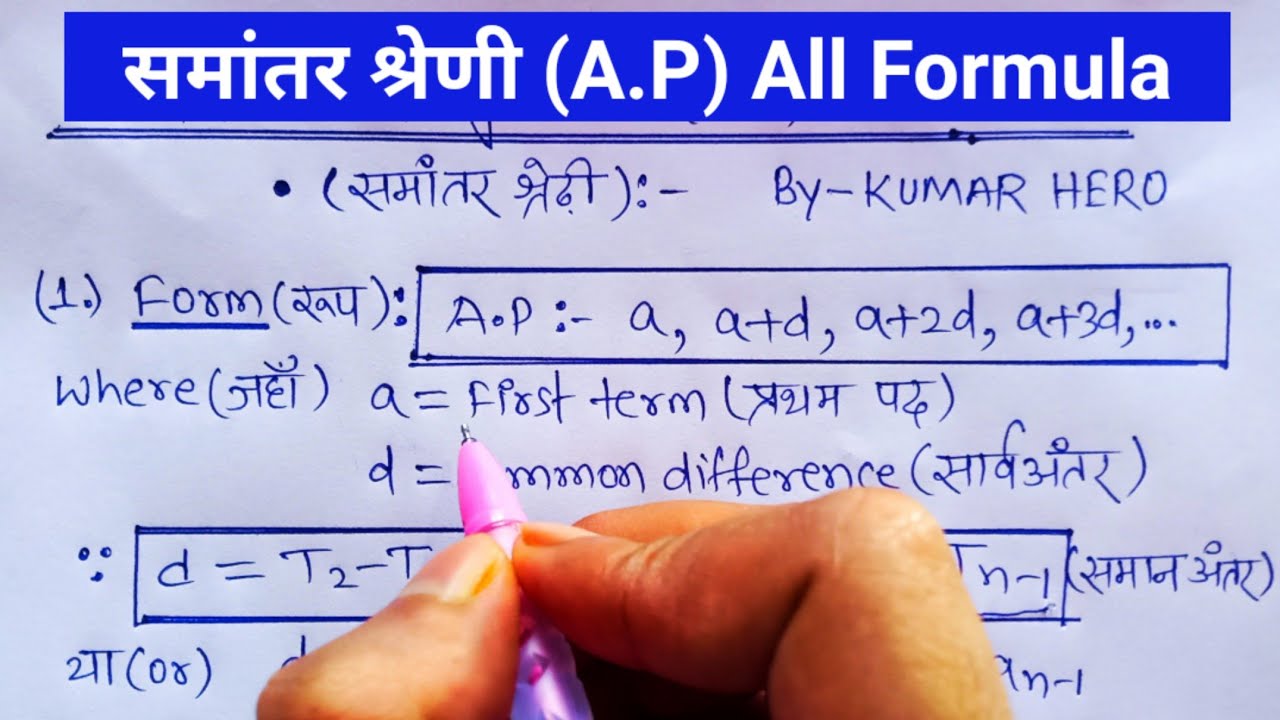 समांतर श्रेणी (A.P) All Formula
• (समांतर श्रेढ़ी):- By-KUMAR HERO
(1.) Form(रूप): A.P :- a, a+d, a+2d, a+3d,...
where(जहाँ) a = First term (प्रथम पद)
d = mmon difference (सार्वअंतर)
∵ d = T₂-T n-1 (समान अंतर)
या(or) n-1